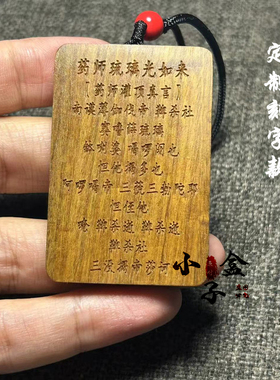 药师琉璃光如来
[药师灌顶真言]
南谟薄伽伐帝 鞞杀社
窭噜薛琉璃
钵喇婆 喝啰阇也
怛他揭多也
阿啰喝帝 三藐三勃陀耶
怛侄他
唵 鞞杀逝 鞞杀逝
鞞杀社
三没揭帝莎诃
定制刻字
小盒子